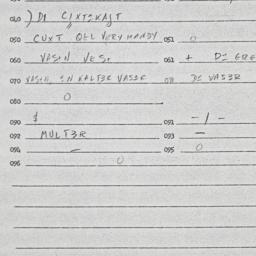 040 ) DI
050 CUXT OEL VERY HANDY 051 0
060 VASIN VESI 061 + DI
070 VASIN IN KALT3R VAS3R 071 DI VAS3R
080 0
090 $ 091 - / -
092 MULT3R 093 -
094 - 095 0
096 0